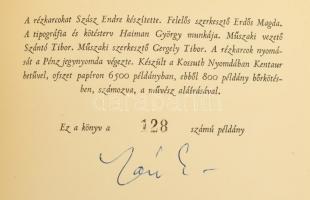 A rézkarcokat Szász Endre készítette. Felelős szerkesztő Erdős Magda.
A tipográfia és kötésterv Haiman György munkája. Műszaki vezető
Szántó Tibor. Műszaki szerkesztő Gergely Tibor. A rézkarcok nyomá-
sát a Pénzjegynyomda végezte. Készült a Kossuth Nyomdában Kentaur
betűvel, ofszet papíron 6500 példányban, ebből 800 példány bőrkötés-
ben, számozva, a művész aláírásával.
darabanth
Ez a könyv a 128 számú példány